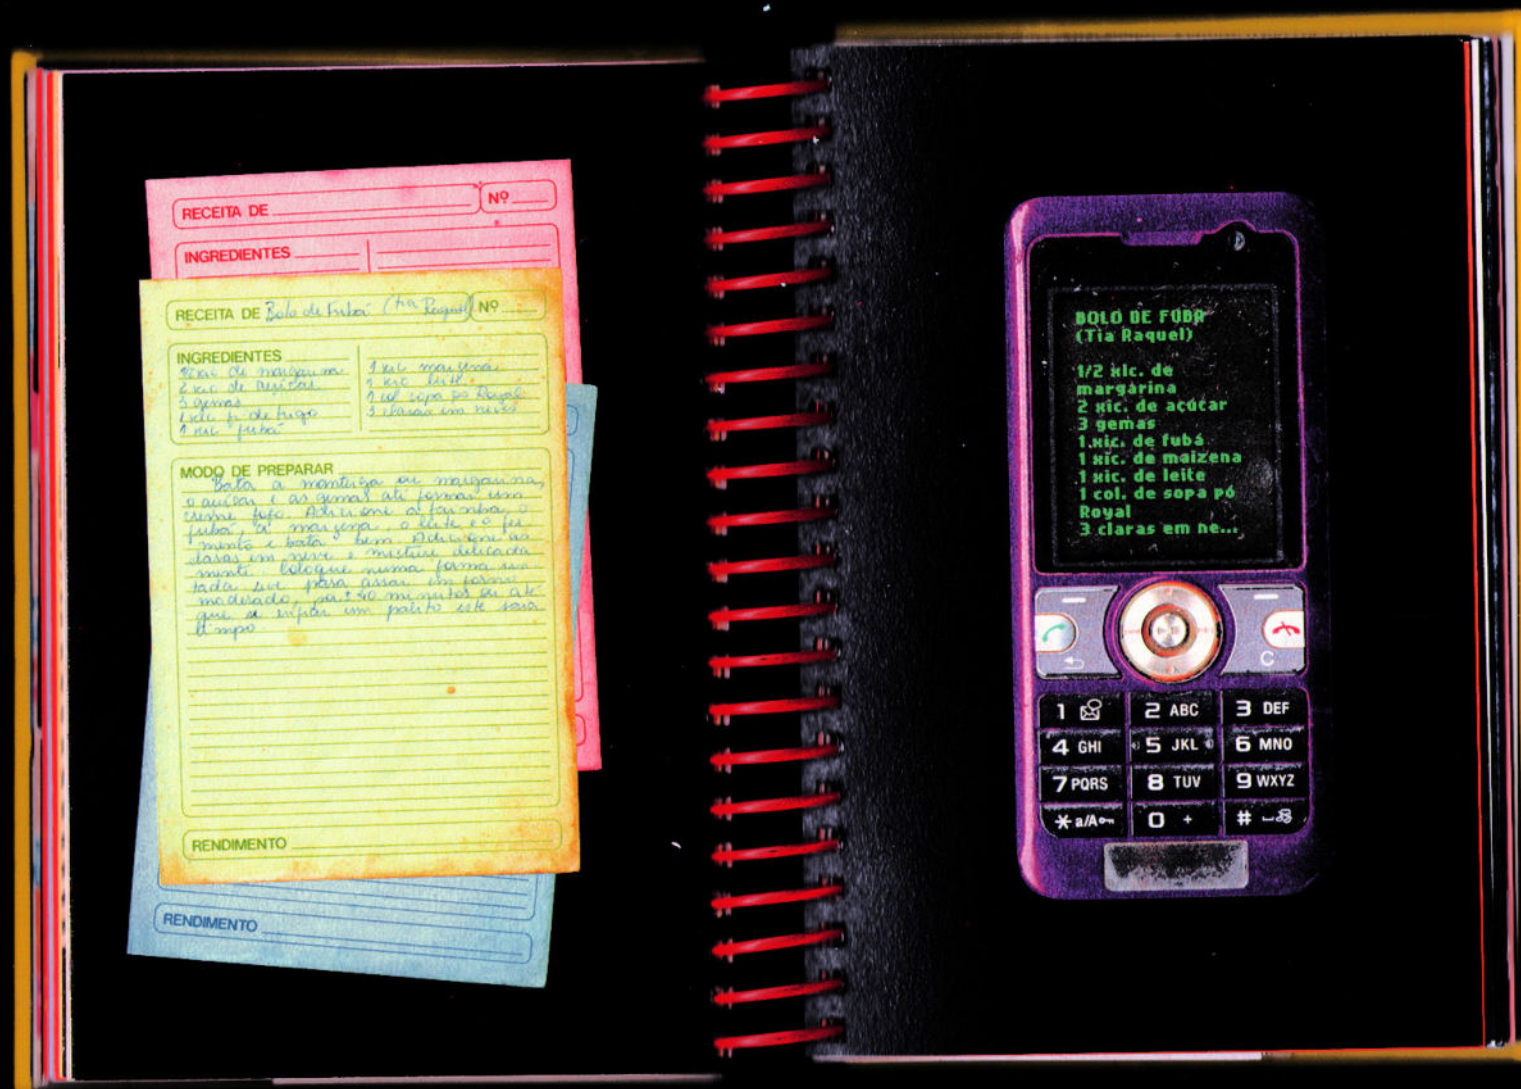 RECEITA DE
Nº
INGREDIENTES
RECEITA DE Bolo de Fubá (tia Raquel) Nº
INGREDIENTES
1/2 xic de margarina
2 xic de açúcar
3 gemas
1 xic f. de trigo
1 xic fubá
1 xic maizena
1 xic leite
1 col sopa pó Royal
3 claras em neve
MODO DE PREPARAR
Bata a manteiga ou margarina,
o açúcar e as gemas até formar um
creme fofo. Adicione a farinha, o
fubá, a maizena, o leite e o fer
mento e bata bem. Adicione as
claras em neve e misture delicada
mente. Coloque numa forma un
tada leve para assar em forno
moderado, por ± 40 minutos ou até
que se enfiar um palito este saia
limpo.
RENDIMENTO
RENDIMENTO
BOLO DE FUBÁ
(Tia Raquel)
1/2 xic. de
margarina
2 xic. de açúcar
3 gemas
1 xic. de fubá
1 xic. de maizena
1 xic. de leite
1 col. de sopa pó
Royal
3 claras em ne...
C
1
2 ABC
3 DEF
4 GHI
5 JKL
6 MNO
7 PQRS
8 TUV
9 WXYZ
* a/A
0 +
#